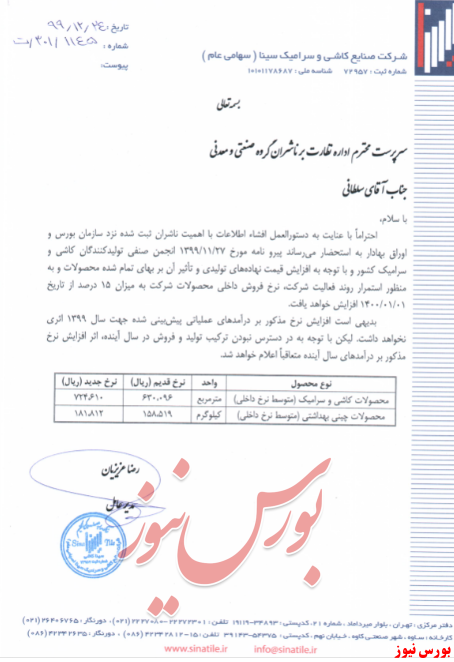 تاریخ: ۹۹,۱۲,۲۴
شماره: ۳۰۱/۱۱۴۵/ت
پیوست:
شرکت صنایع کاشی و سرامیک سینا ( سهامی عام )
شماره ثبت : ۷۲۹۵۷ شناسه ملی : ۱۰۱۰۱۱۷۸۶۸۷
بسمه تعالی
سرپرست محترم اداره نظارت بر ناشران گروه صنعتی و معدنی
جناب آقای سلطانی
با سلام،
احتراماً با عنایت به دستورالعمل افشاء اطلاعات با اهمیت ناشران ثبت شده نزد سازمان بورس و
اوراق بهادار به استحضار می‌رساند پیرو نامه مورخ ۱۳۹۹/۱۱/۲۷ انجمن صنفی تولیدکنندگان کاشی و
سرامیک کشور و با توجه به افزایش قیمت نهاده‌های تولیدی و تأثیر آن بر بهای تمام شده محصولات و به
منظور استمرار روند فعالیت شرکت، نرخ فروش داخلی محصولات شرکت به میزان ۱۵ درصد از تاریخ
۱۴۰۰/۰۱/۰۱ افزایش خواهد یافت.
بدیهی است افزایش نرخ مذکور بر درآمدهای عملیاتی پیش‌بینی شده جهت سال ۱۳۹۹ اثری
نخواهد داشت. لیکن با توجه به در دسترس نبودن ترکیب تولید و فروش در سال آینده، اثر افزایش نرخ
مذکور بر درآمدهای سال آینده متعاقباً اعلام خواهد شد.
نوع محصول واحد نرخ قدیم (ریال) نرخ جدید (ریال)
محصولات کاشی و سرامیک (متوسط نرخ داخلی) مترمربع ۶۳۰,۰۹۶ ۷۲۴,۶۱۰
محصولات چینی بهداشتی (متوسط نرخ داخلی) کیلوگرم ۱۵۸,۵۱۹ ۱۸۱,۸۱۲
رضا عزیزیان
مدیرعامل
بورس نیوز
دفتر مرکزی : تهران - بلوار میرداماد ، شماره ۲۱ ، کدپستی : ۳۴۸۹۳-۱۹۱۱۹
کارخانه : ساوه ، شهر صنعتی کاوه
www.sinatile.ir info@sinatile.ir
بورس نیوز